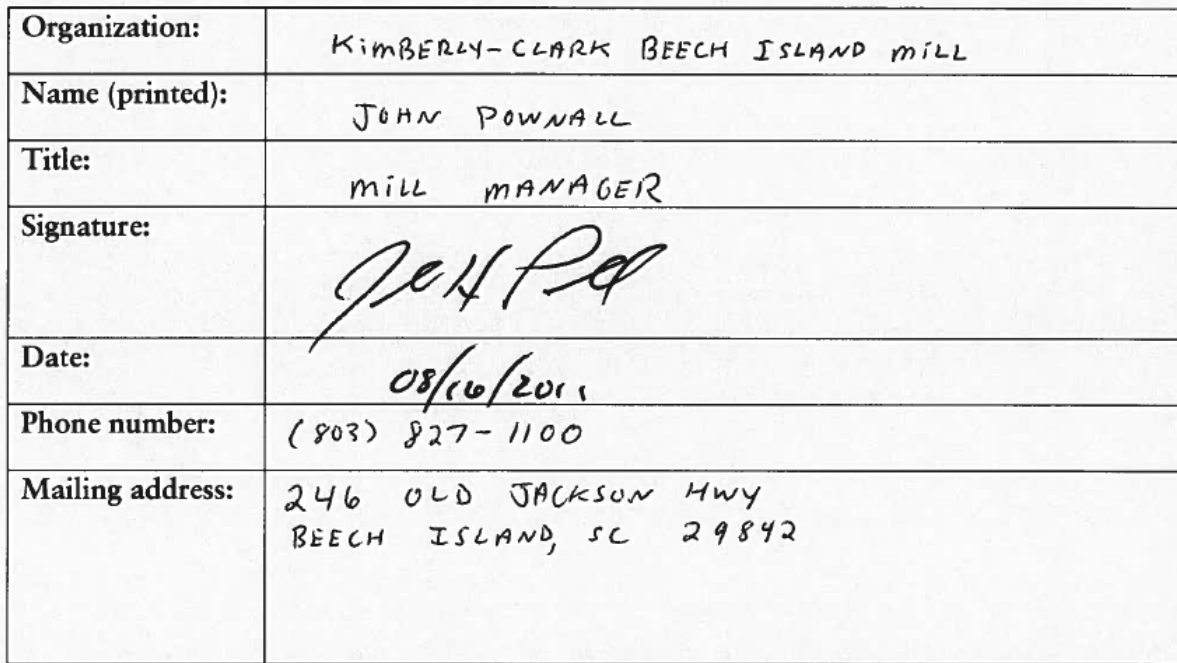 Organization: KimBERLY-CLARK BEECH ISLAND mill
Name (printed): JOHN POWNALL
Title: mill mANAGER
Signature:
Date: 08/16/2011
Phone number: (803) 827-1100
Mailing address: 246 OLD JACKSON HWY
BEECH ISLAND, SC 29842